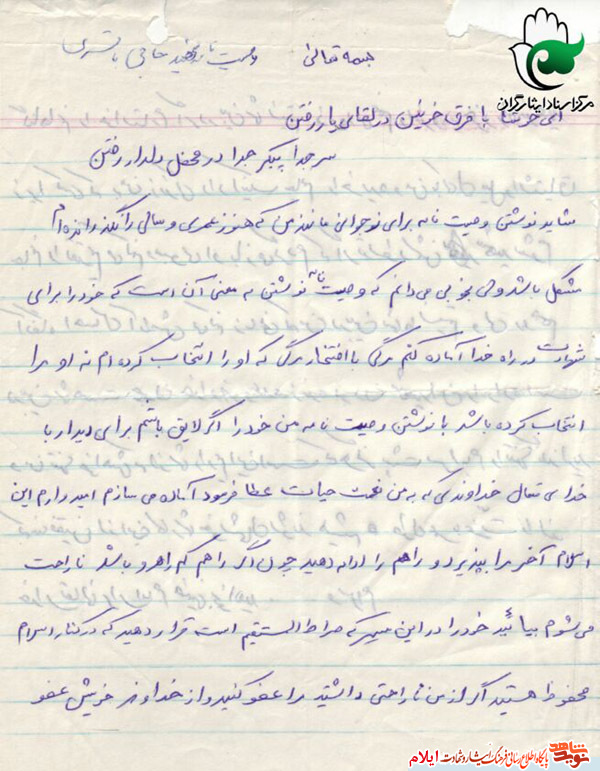 مرکز اسناد ایثارگران
بسمه تعالی
وصیت نامه شهید حاجی
ای خوشا با فرق خونین در لقای یار رفتن
سر جدا پیکر جدا در محفل دلدار رفتن
شاید نوشتن وصیت نامه برای نوجوانی مانند من که هنوز عمری و سالی را نگذرانده ام
مشکل باشد ولی بخوبی می دانم که وصیت نامه نوشتن به معنی آن است که خود را برای
شهادت در راه خدا آماده کنم مرگی با افتخار مرگی که او را انتخاب کرده ام نه او مرا
انتخاب کرده باشد با نوشتن وصیت نامه من خود را اگر لایق باشم برای دیدار با
خدای متعال خداوندی که به من نعمت حیات عطا فرمود آماده می سازم امیدوارم این
اسلام آخر مرا بپذیرد و راهم را ادامه دهید چون اگر راهم کم راهرو باشد ناراحت
می شوم بیائید خود را در این مسیر که صراط المستقیم است قرار دهید که در کنار اسلام
محفوظ هستید اگر از من ناراحتی داشتید مرا عفو کنید و از خداوند خویش عفو
نوید شاهد پایگاه اطلاع رسانی فرهنگ ایثار و شهادت ایلام